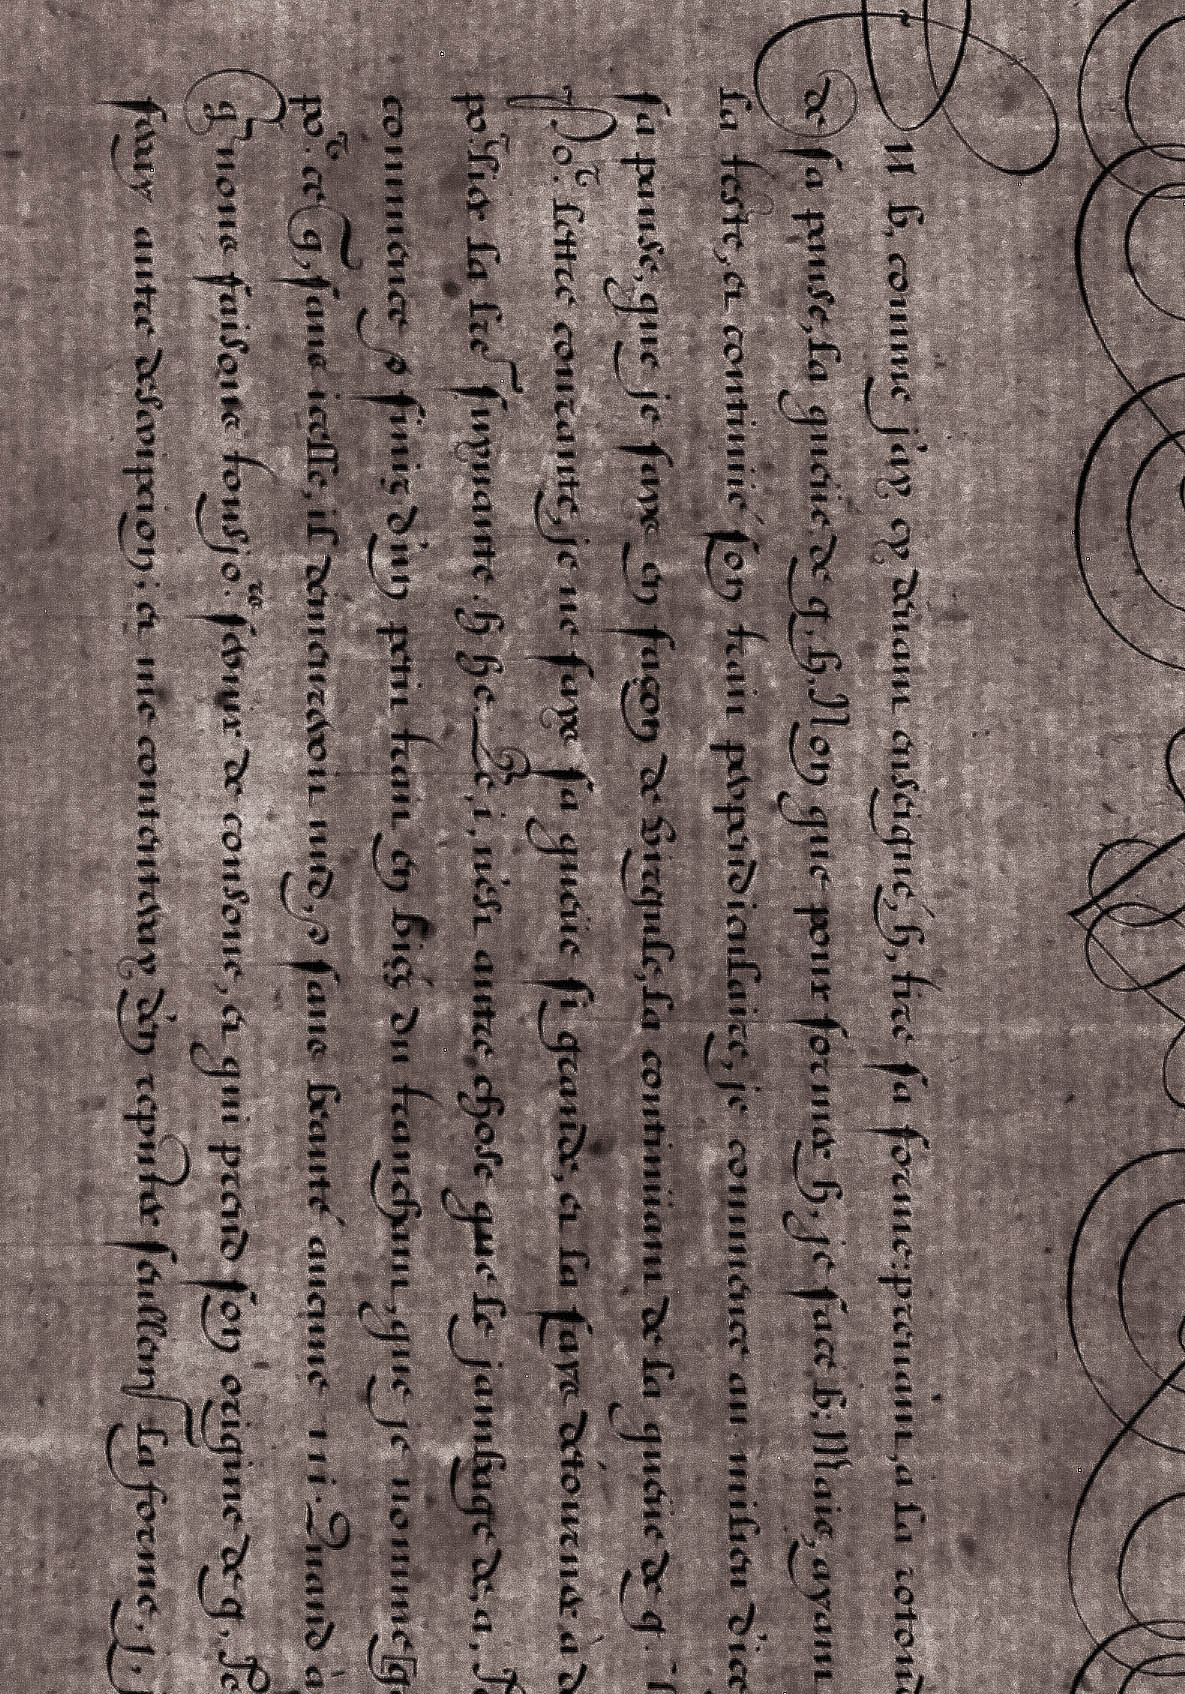 n h, comme j'ay cy devant enseigné, h, tire sa forme: prenant, a la rotond
de sa panse, la queüe de q. h. Non que pour former h, je face b; Mais, ayant
la teste, et continué son train perpendiculaire, je commence au milieu d'ice
sa panse, que je faye en façon de virgule, la continüant de la queüe de q.
Po.r lettre courante, je ne faye sa queüe si grande, et la faye détourner à d
po.r lier la lre suyvante. h he. i, n'est autre chose que le jambage de, a,
commencé & finis d'un petit train en biès du tranchant, que je nomme
po.r ce q, sans icelle, il demeureroit nud, & sans beauté aucune ii. Quand à
q nous faisons tousjo.rs servir de consone, et qui prend son origine de g, Je
feray autre description; et me contenteray d'en reputer seullem.t la forme. j,